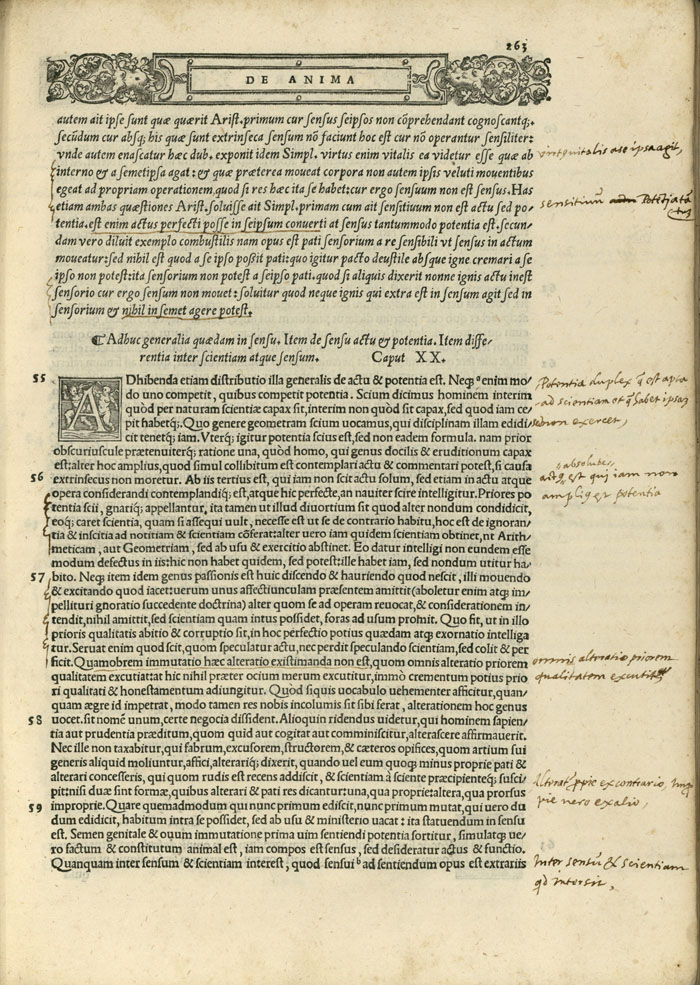 263
DE ANIMA
autem ait ipse sunt quæ quærit Arist. primum cur sensus seipsos non cõprehendant cognoscantq;
secũdum cur absq; his quæ sunt extrinseca sensum nõ faciunt hoc est cur nõ operantur sensiliter:
vnde autem enascatur hæc dub. exponit idem Simpl. virtus enim vitalis ea videtur esse quæ ab
interno & a semetipsa agat: & quæ præterea moueat corpora non autem ipsis veluti mouentibus
egeat ad propriam operationem, quod si res hæc ita se habet: cur ergo sensuum non est sensus. Has
etiam ambas quæstiones Arist. soluisse ait Simpl. primam cum ait sensitiuum non est actu sed po-
tentia. est enim actus perfecti posse in seipsum conuerti at sensus tantummodo potentia est. secun-
dam vero diluit exemplo combustilis nam opus est pati sensorium a re sensibili vt sensus in actum
moueatur: sed nihil est quod a se ipso possit pati: quo igitur pacto deustile absque igne cremari a se
ipso non potest: ita sensorium non potest a seipso pati. quod si aliquis dixerit nonne ignis actu inest
sensorio cur ergo sensum non mouet: soluitur quod neque ignis qui extra est in sensum agit sed in
sensorium & nihil in semet agere potest.
¶ Adhuc generalia quædam in sensu. Item de sensu actu & potentia. Item diffe-
rentia inter scientiam atque sensum. Caput XX.
55 ADhibenda etiam distributio illa generalis de actu & potentia est. Neq; ᵃ enim mo-
do uno competit, quibus competit potentia. Scium dicimus hominem interim
quòd per naturam scientiæ capax sit, interim non quòd sit capax, sed quod iam ce-
pit habetq;. Quo genere geometram scium uocamus, qui disciplinam illam edidi-
cit tenetq; iam. Vterq; igitur potentia scius est, sed non eadem formula. nam prior
obscuriuscule prætenuiterq; ratione una, quòd homo, qui genus docilis & eruditionum capax
est: alter hoc amplius, quod simul collibitum est contemplari actu & commentari potest, si causa
56 extrinsecus non moretur. Ab iis tertius est, qui iam non scit actu solum, sed etiam in actu atque
opera considerandi contemplandiq; est, atque hic perfecte, an nauiter scire intelligitur. Priores po
tentia scii, gnariq; appellantur. ita tamen ut illud diuortium sit quod alter nondum condidicit,
eoq; caret scientia, quam si assequi uult, necesse est ut se de contrario habitu, hoc est de ignoran-
tia & inscitia ad notitiam & scientiam cõferat: alter uero iam quidem scientiam obtinet, nt Arith-
meticam, aut Geometriam, sed ab usu & exercitio abstinet. Eo datur intelligi non eundem esse
modum defectus in iis: hic non habet quidem, sed potest: ille habet iam, sed nondum utitur ha-
57 bito. Neq; item idem genus passionis est huic discendo & hauriendo quod nescit, illi mouendo
& excitando quod iacet: uerum unus affectiunculam præsentem amittit (aboletur enim atq; im-
pellitur ignoratio succedente doctrina) alter quom se ad operam reuocat, & considerationem in
tendit, nihil amittit, sed scientiam quam intus possidet, foras ad usum promit. Quo fit, ut in illo
prioris qualitatis abitio & corruptio sit, in hoc perfectio potius quædam atq; exornatio intelliga
tur. Seruat enim quod scit, quom speculatur actu, nec perdit speculando scientiam, sed colit & per
ficit. Quamobrem immutatio hæc alteratio existimanda non est, quom omnis alteratio priorem
qualitatem excutiat: at hic nihil præter ocium merum excutitur, immò crementum potius prio
ri qualitati & honestamentum adiungitur. Quòd siquis uocabulo uehementer afficitur, quan-
quam ægre id impetrat, modo tamen res nobis incolumis sit sibi ferat, alterationem hoc genus
58 uocet. sit nomẽ unum, certe negocia dissident. Alioquin ridendus uidetur, qui hominem sapien-
tia aut prudentia præditum, quom quid aut cogitat aut comminiscitur, alterascere affirmauerit.
Nec ille non taxabitur, qui fabrum, excusorem, structorem, & cæteros opifices, quom artium sui
generis aliquid moliuntur, affici, alterariq; dixerit, quando uel eum quoq; minus proprie pati &
alterari concesseris, qui quom rudis est recens addiscit, & scientiam à sciente præcipienteq; susci-
pit: nisi duæ sint formæ, quibus alterari & pati res dicantur: una, quа proprie: altera, qua prorsus
59 improprie. Quare quemadmodum qui nunc primum ediscit, nunc primum mutat, qui uero du
dum edidicit, habitum intra se possidet, sed ab usu & ministerio uacat: ita statuendum in sensu
est. Semen genitale & ouum immutatione prima uim sentiendi potentia fortitur, simulatq; ue-
ro factum & constitutum animal est, iam compos est sensus, sed desideratur actus & functio.
Quanquam inter sensum & scientiam interest, quod sensui ᵇ ad sentiendum opus est extrariis
sensitiuum
Potentia duplex
omnis alteratio priorem
qualitatem excutit
Inter sensũ & scientiam
qd intersit,